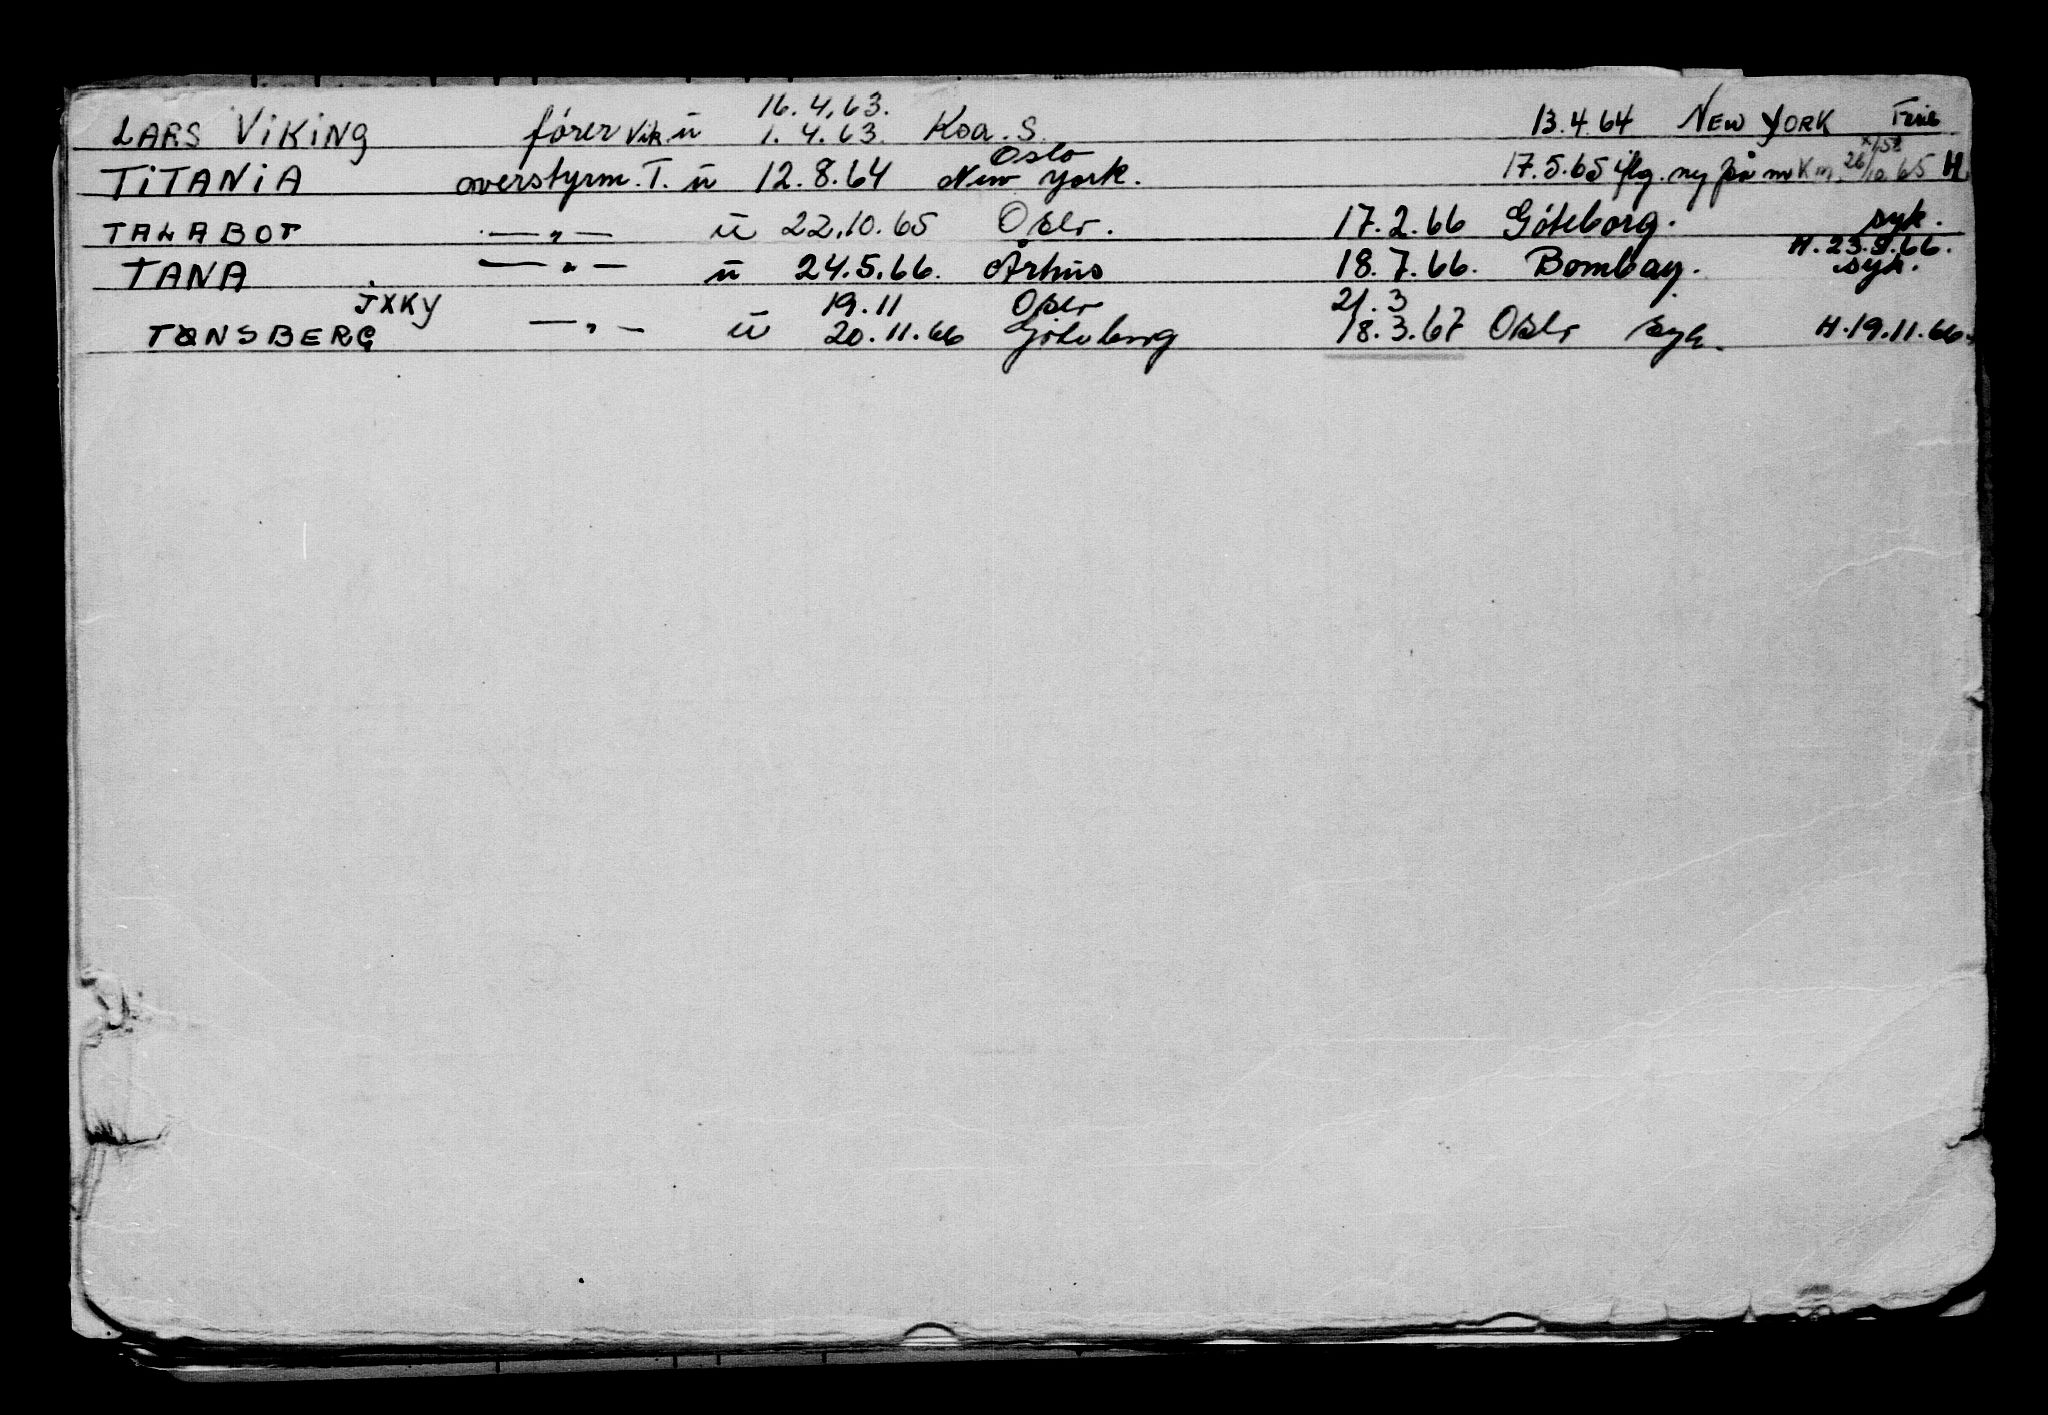 16.4.63.
LARS ViKiNG fører Vik. ü 1.4.63. Koa. S. 13.4.64 NEW YORK
Oslo
TiTANiA overstyrm. T. ü 12.8.64 New York. 17.5.65 iflg. ny på m 26/10 65 H
TALABOT —„— ü 22.10.65 Oslo. 17.2.66 Göteborg. syk.
H. 23.5.66.
TANA —„— ü 24.5.66. Århus 18.7.66. Bombay. syk.
JXKY 19.11 Oslo 21.3
TØNSBERG —„— ü 20.11.66 Göteborg 18.3.67 Oslo syk. H.19.11.66